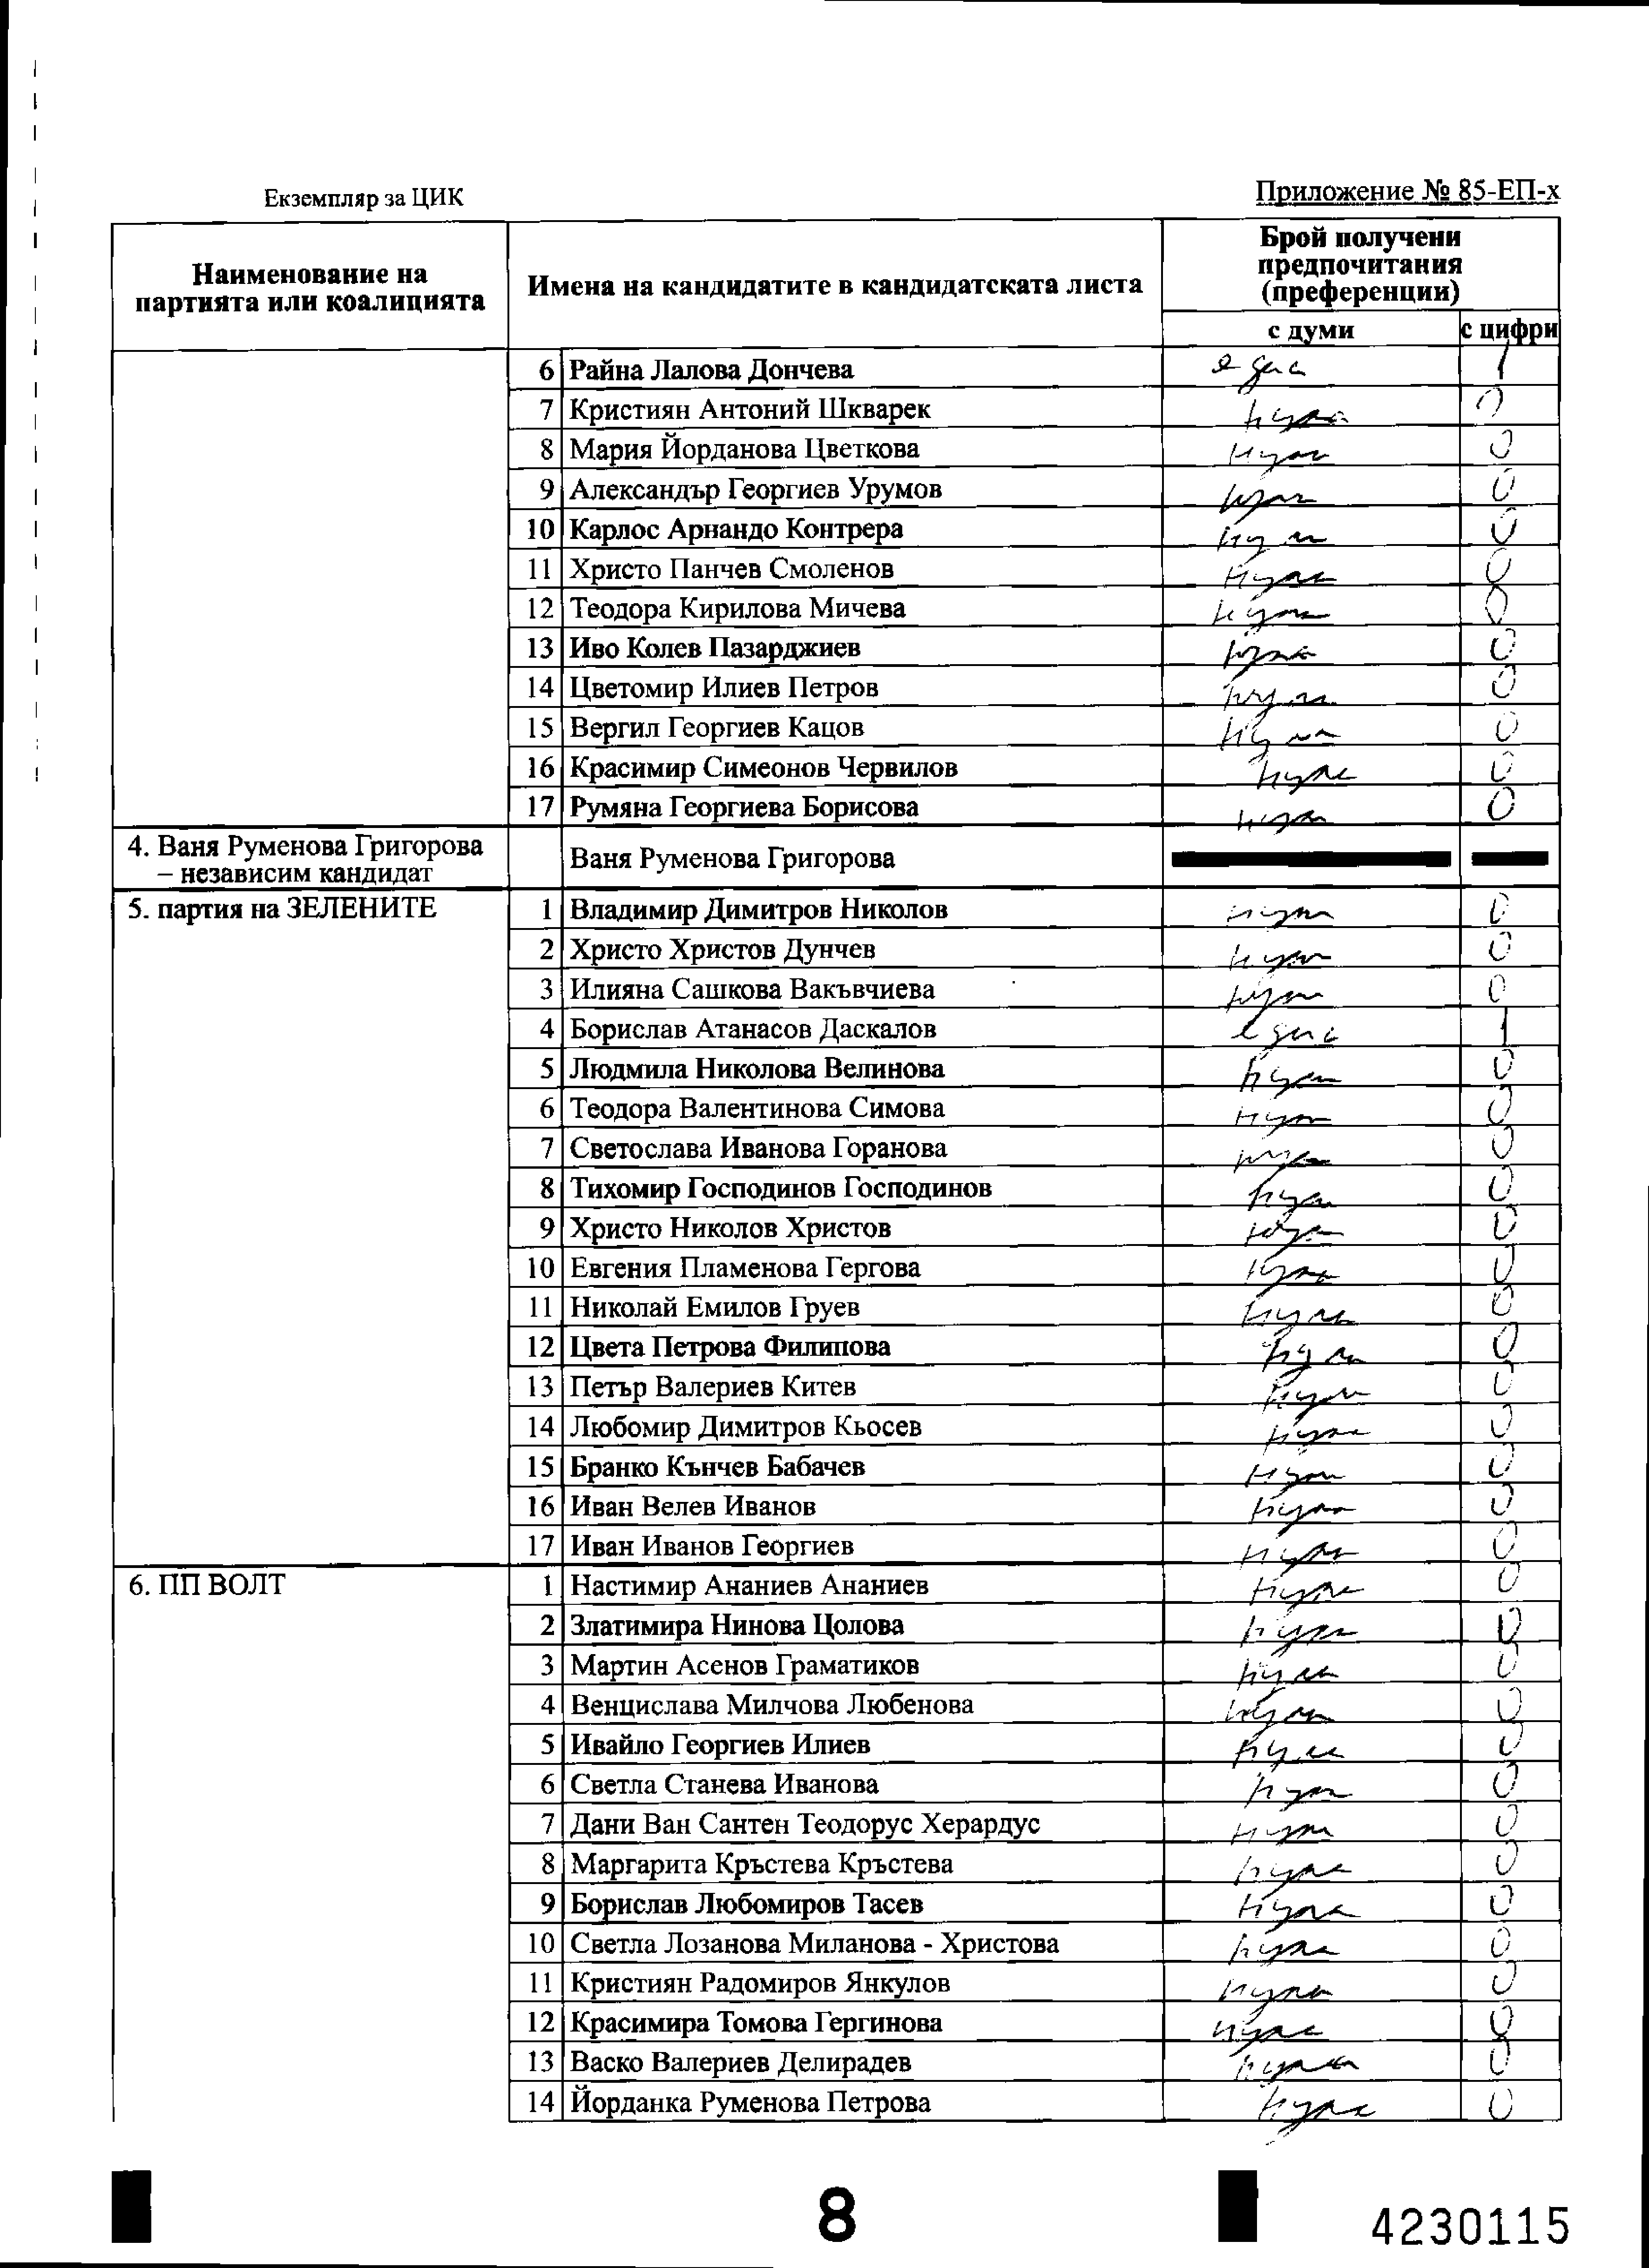 Екземпляр за ЦИК
Приложение № 85-ЕП-х
Наименование на партията или коалицията
Имена на кандидатите в кандидатската листа
Брой получени предпочитания (преференции)
с думи
с цифри
6 Райна Лалова Дончева една 1
7 Кристиян Антоний Шкварек нула 0
8 Мария Йорданова Цветкова нула 0
9 Александър Георгиев Урумов нула 0
10 Карлос Арнандо Контрера нула 0
11 Христо Панчев Смоленов нула 0
12 Теодора Кирилова Мичева нула 0
13 Иво Колев Пазарджиев нула 0
14 Цветомир Илиев Петров нула 0
15 Вергил Георгиев Кацов нула 0
16 Красимир Симеонов Червилов нула 0
17 Румяна Георгиева Борисова нула 0
4. Ваня Руменова Григорова – независим кандидат
Ваня Руменова Григорова
5. партия на ЗЕЛЕНИТЕ
1 Владимир Димитров Николов нула 0
2 Христо Христов Дунчев нула 0
3 Илияна Сашкова Вакъвчиева нула 0
4 Борислав Атанасов Даскалов една 1
5 Людмила Николова Велинова нула 0
6 Теодора Валентинова Симова нула 0
7 Светослава Иванова Горанова нула 0
8 Тихомир Господинов Господинов нула 0
9 Христо Николов Христов нула 0
10 Евгения Пламенова Гергова нула 0
11 Николай Емилов Груев нула 0
12 Цвета Петрова Филипова нула 0
13 Петър Валериев Китев нула 0
14 Любомир Димитров Кьосев нула 0
15 Бранко Кънчев Бабачев нула 0
16 Иван Велев Иванов нула 0
17 Иван Иванов Георгиев нула 0
6. ПП ВОЛТ
1 Настимир Ананиев Ананиев нула 0
2 Златимира Нинова Цолова нула 0
3 Мартин Асенов Граматиков нула 0
4 Венцислава Милчова Любенова нула 0
5 Ивайло Георгиев Илиев нула 0
6 Светла Станева Иванова нула 0
7 Дани Ван Сантен Теодорус Херардус нула 0
8 Маргарита Кръстева Кръстева нула 0
9 Борислав Любомиров Тасев нула 0
10 Светла Лозанова Миланова - Христова нула 0
11 Кристиян Радомиров Янкулов нула 0
12 Красимира Томова Гергинова нула 0
13 Васко Валериев Делирадев нула 0
14 Йорданка Руменова Петрова нула 0
8
4230115